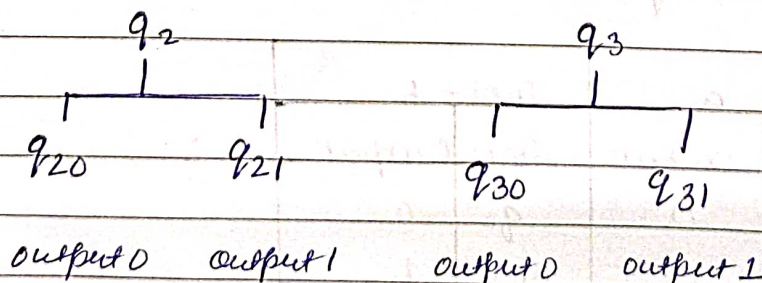 q2 q3
q20 q21 q30 q31
output 0 output 1 output 0 output 1